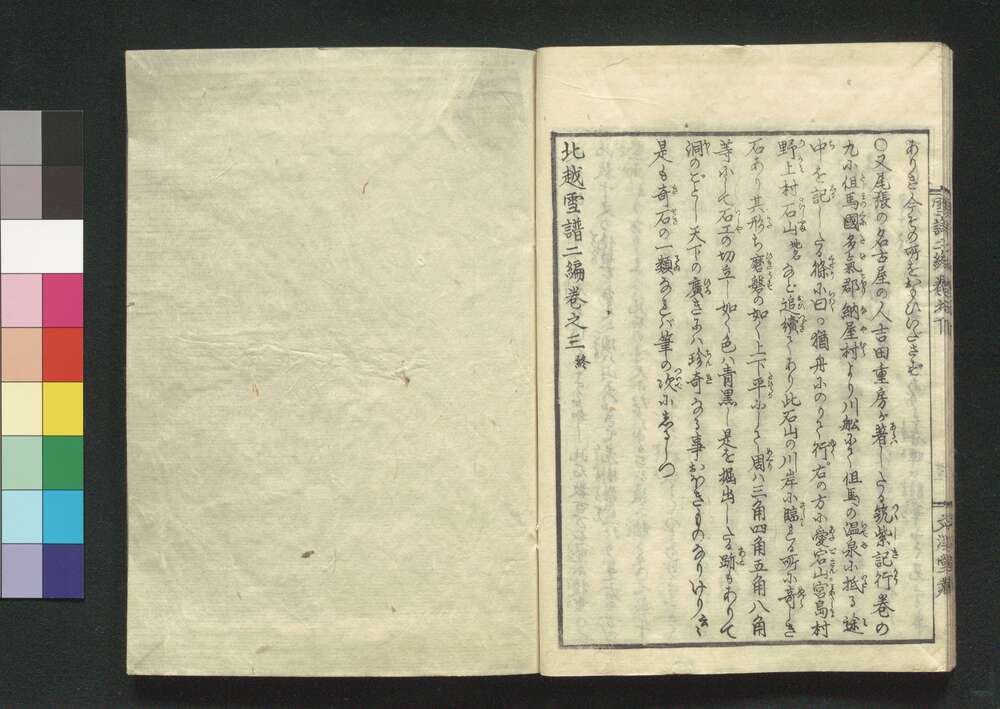 ありき今その所をおもひいださず
○又尾張の名古屋の人吉田重房が著したる筑紫記行巻の
九に但馬國多気郡納屋村より川船にて但馬の温泉に抵る途
中を記したる條に曰く猶舟にのりて行右の方に愛宕山宮島村
野上村石山地名など追續てあり此石山の川岸に臨たる所に奇しき
石あり其形ち磨磐の如く上下平にして周は三角四角五角八角
等にして石工の切立し如く色は青黒し是を掘出したる跡もありて
洞のごとし天下の廣きには珍奇なる事おほきものなりけり云々
是も奇石の一類なれば筆の次にしるしつ
北越雪譜二編巻之三終